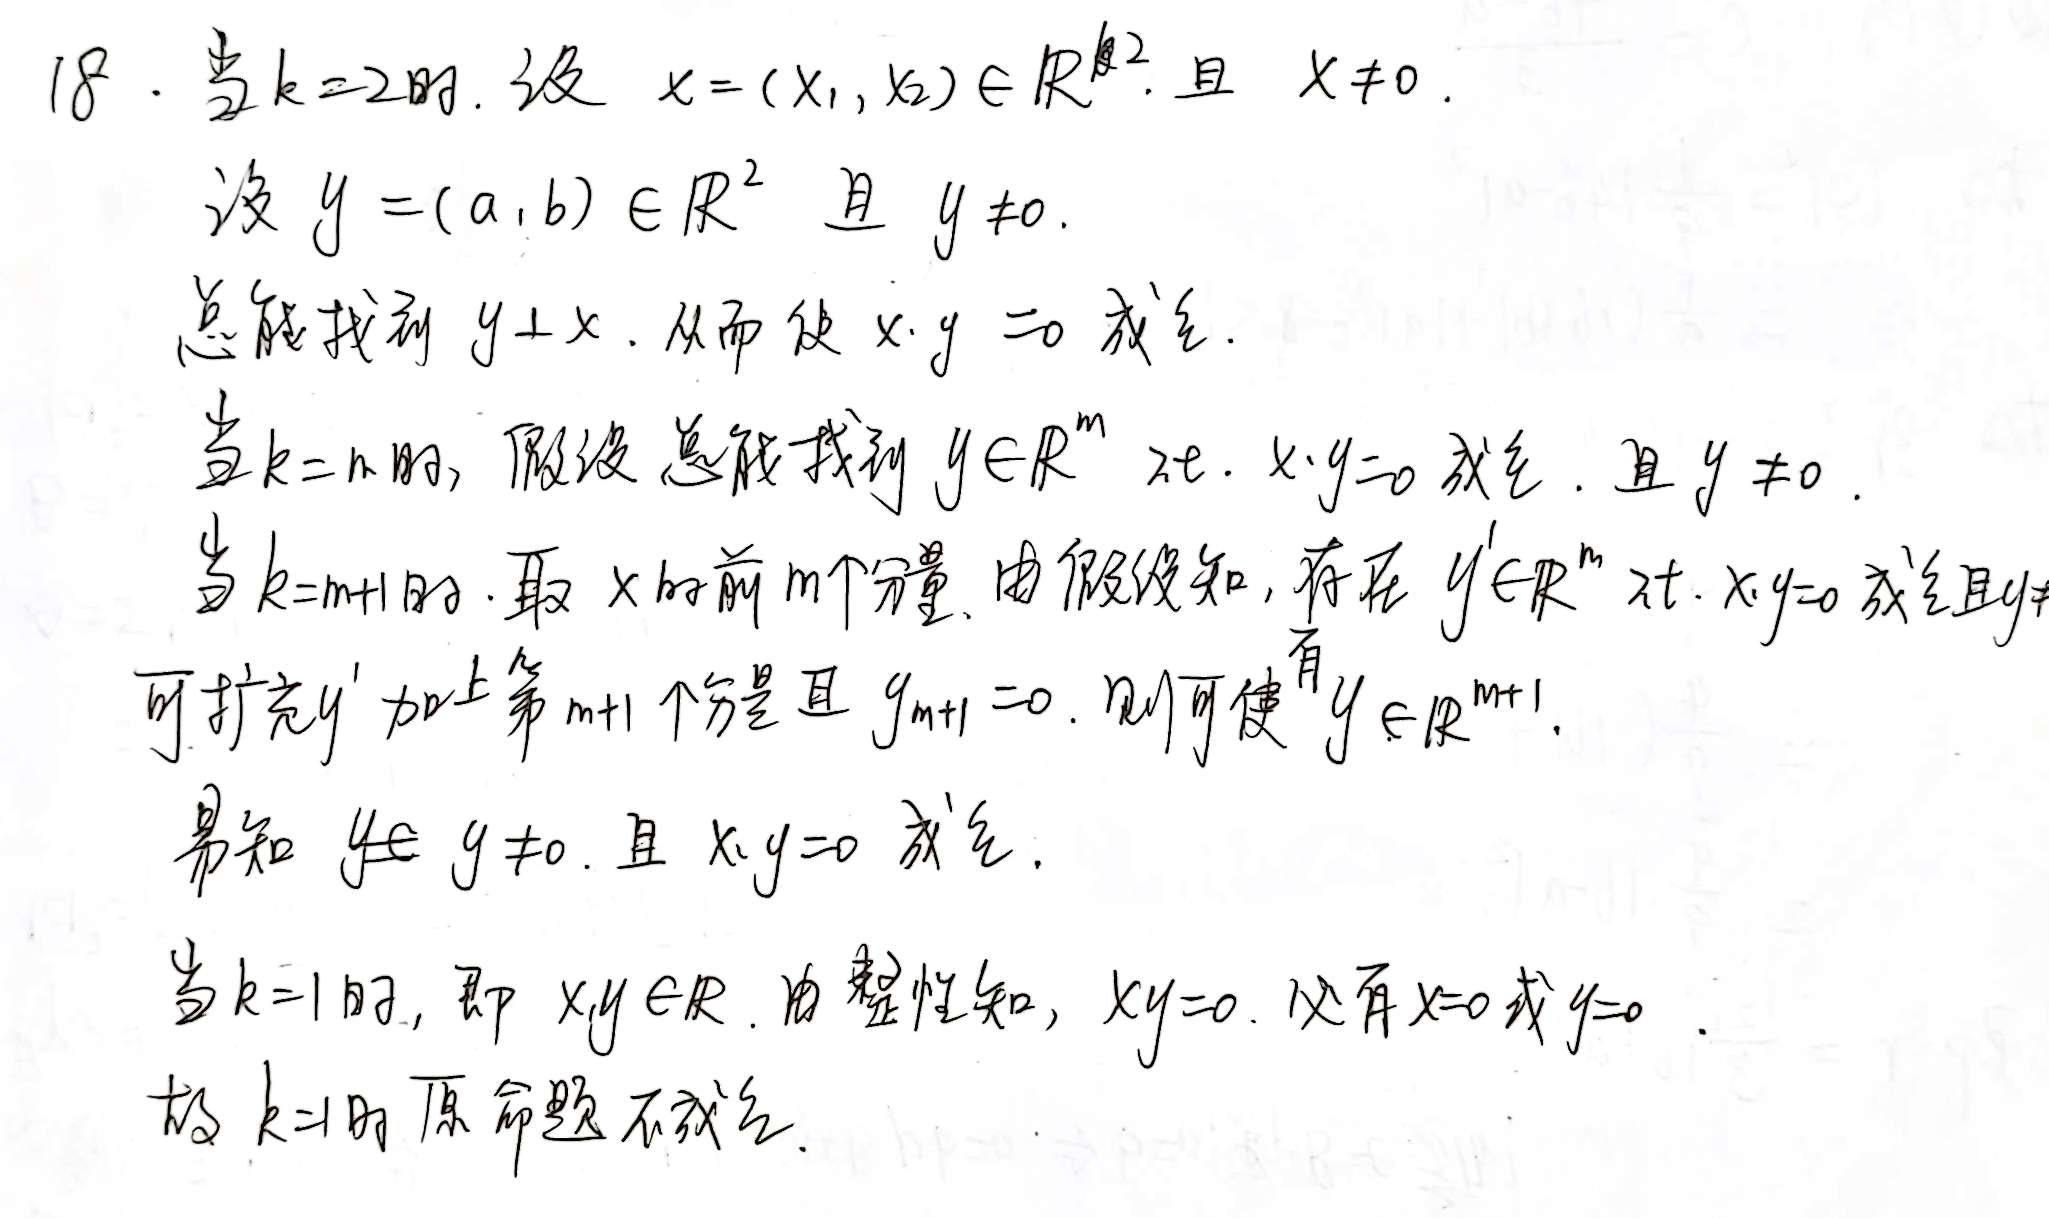 18. 当k=2时. 设 x=(x₁,x₂)∈ℝ². 且 x≠0.
设 y=(a,b)∈ℝ² 且 y≠0.
总能找到 y⊥x. 从而使 x·y=0 成立.
当k=m时, 假设总能找到 y∈ℝᵐ s.t. x·y=0 成立. 且 y≠0.
当k=m+1时. 取 x的前m个分量. 由假设知, 存在 y'∈ℝᵐ s.t. x·y=0 成立且y≠
可扩充y' 加上第m+1个分量且 yₘ₊₁=0. 则可使有 y∈ℝᵐ⁺¹.
易知 y≠0. 且 x·y=0 成立.
当k=1时, 即 x,y∈ℝ. 由整性知, xy=0. 必有x=0或y=0.
故 k=1时原命题不成立.